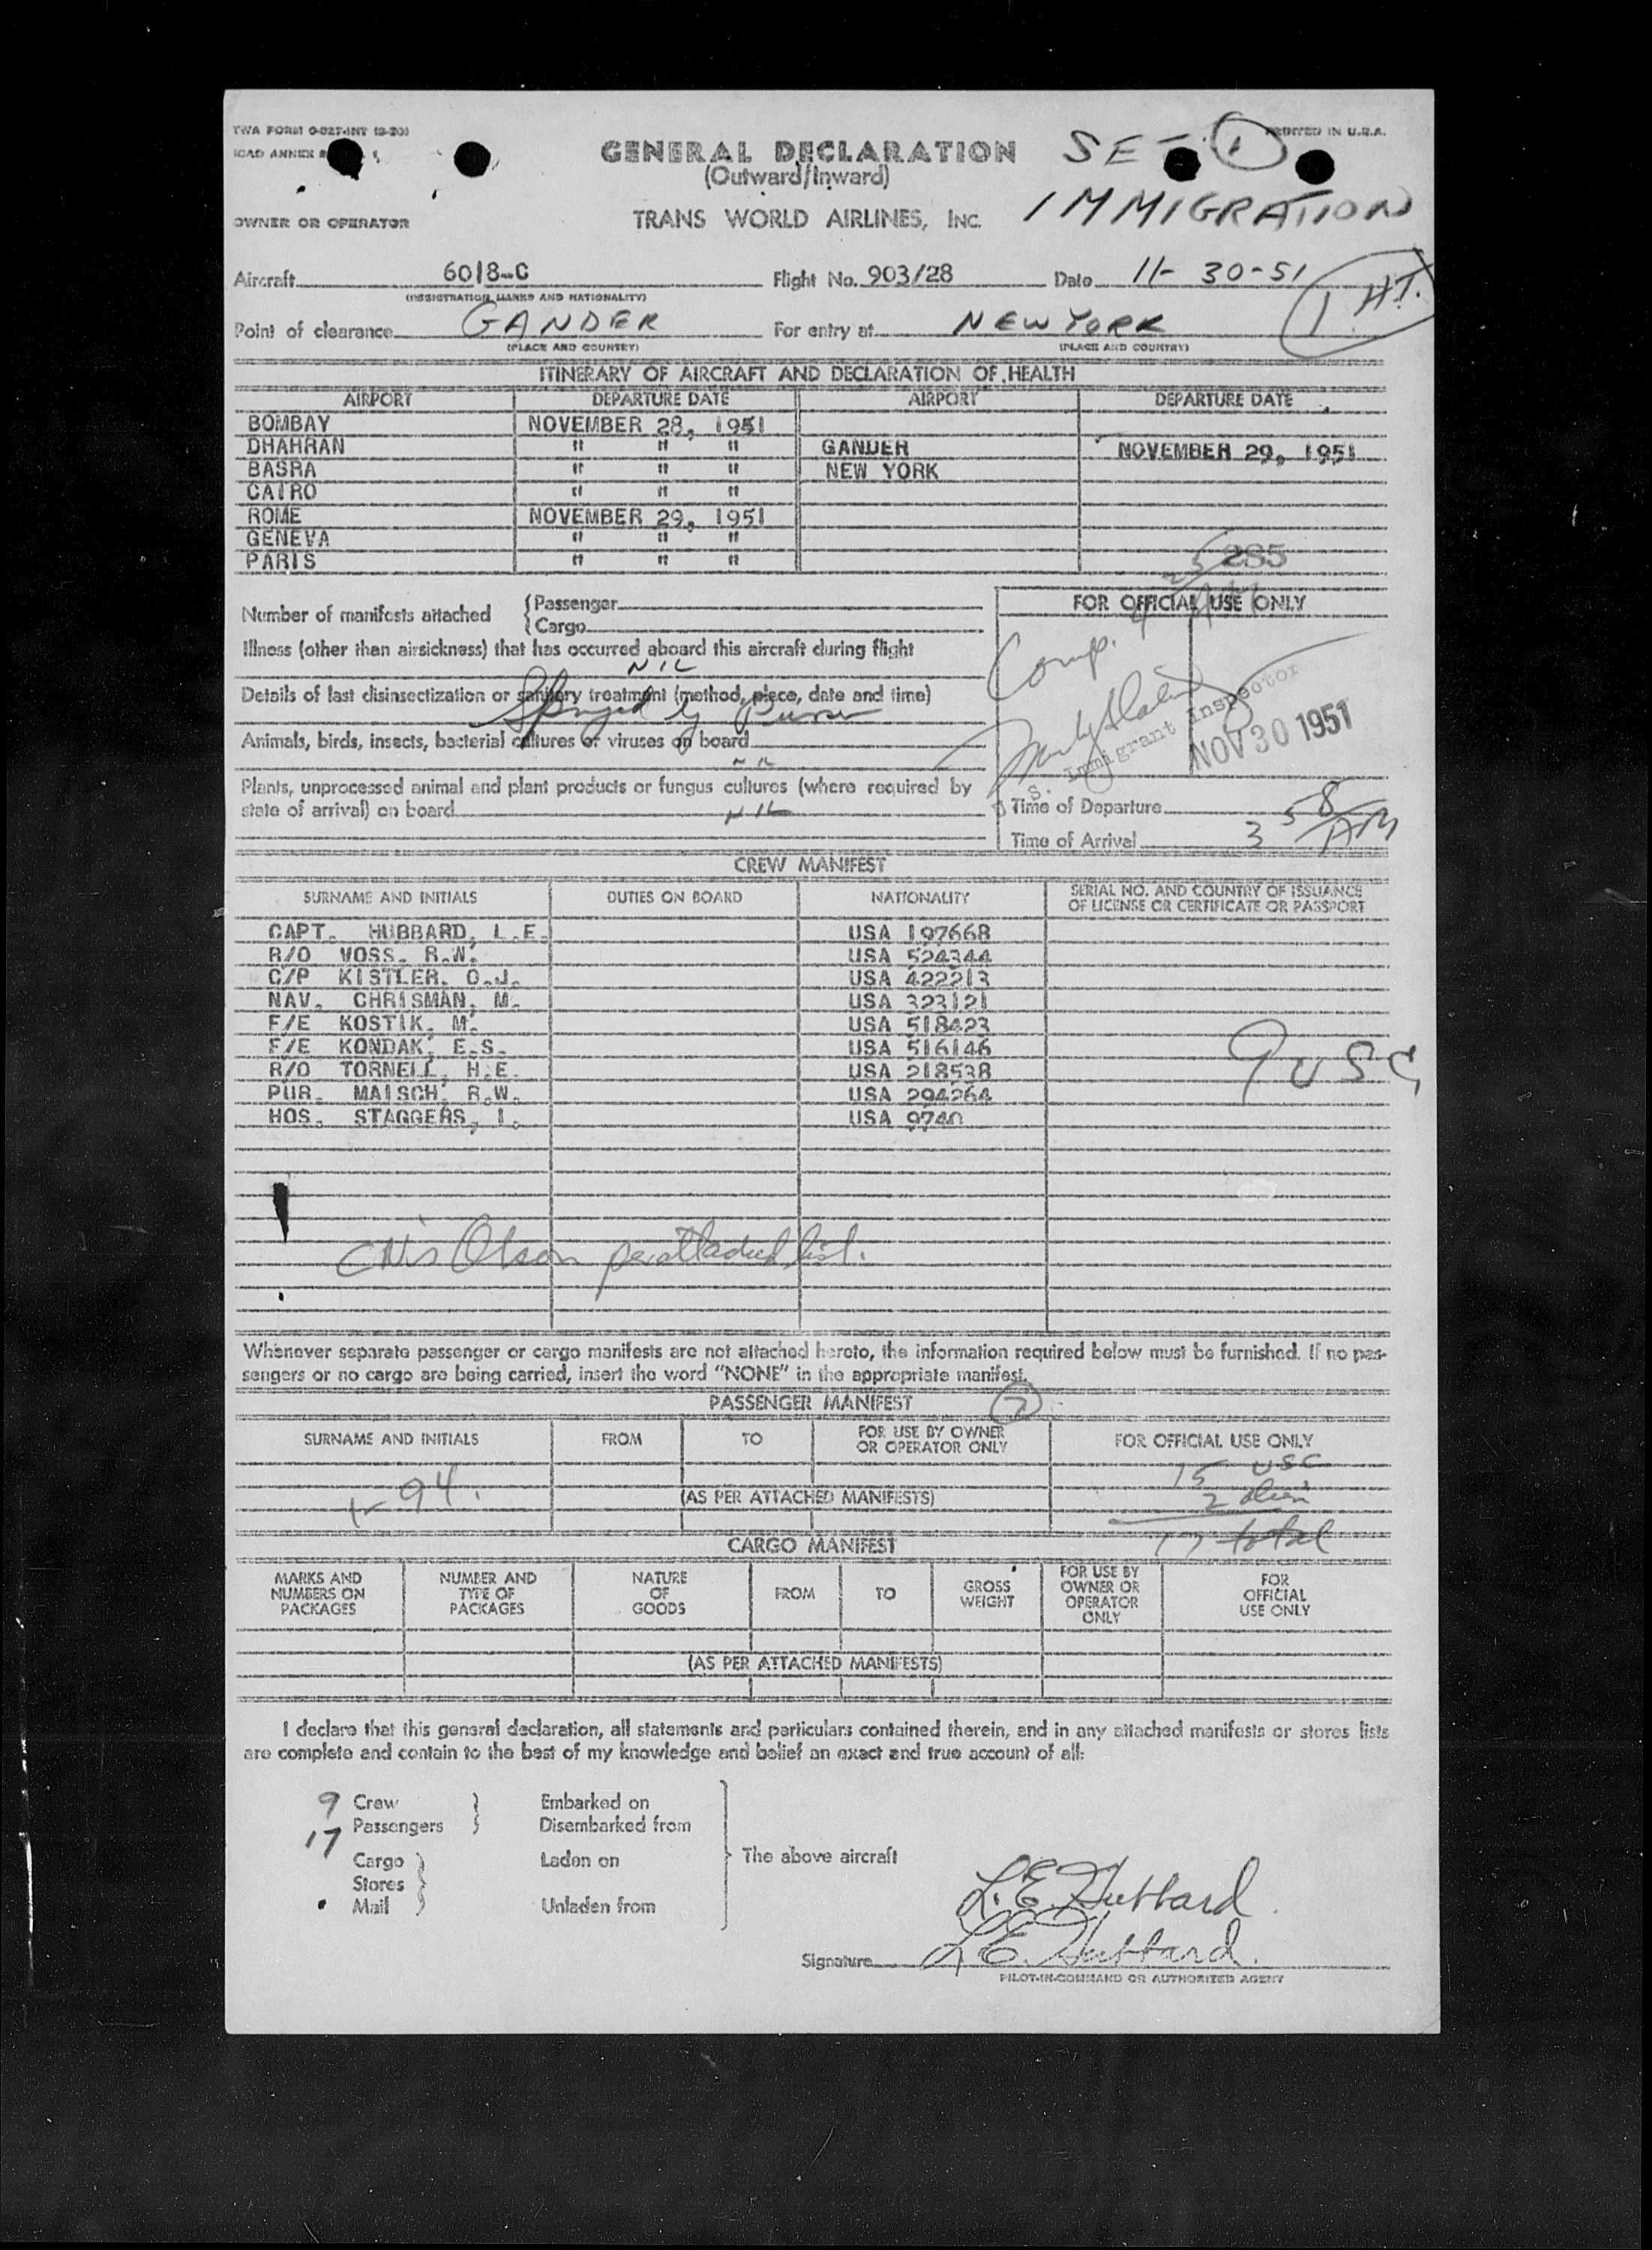 TWA FORM O-027-INT (9-50)
PRINTED IN U.S.A.
ICAO ANNEX
GENERAL DECLARATION
SET 1
(Outward/Inward)
IMMIGRATION
OWNER OR OPERATOR
TRANS WORLD AIRLINES, INC.
Aircraft 6018-C Flight No. 903/28 Date 11-30-51
(REGISTRATION MARKS AND NATIONALITY)
1 HT.
Point of clearance GANDER For entry at NEW YORK
(PLACE AND COUNTRY) (PLACE AND COUNTRY)
ITINERARY OF AIRCRAFT AND DECLARATION OF HEALTH
AIRPORT DEPARTURE DATE AIRPORT DEPARTURE DATE
BOMBAY NOVEMBER 28, 1951
DHAHRAN " " " GANDER NOVEMBER 29, 1951
BASRA " " " NEW YORK
CAIRO " " "
ROME NOVEMBER 29, 1951
GENEVA " " "
PARIS " " "
285
Number of manifests attached { Passenger
{ Cargo
FOR OFFICIAL USE ONLY
Illness (other than airsickness) that has occurred aboard this aircraft during flight
NIL
Comp.
Details of last disinsectization or sanitary treatment (method, place, date and time)
Sprayed by Purser
Immigrant Inspector
NOV 30 1951
Animals, birds, insects, bacterial cultures or viruses on board
NIL
Plants, unprocessed animal and plant products or fungus cultures (where required by
state of arrival) on board NIL
Time of Departure
Time of Arrival 3 58 AM
CREW MANIFEST
SURNAME AND INITIALS DUTIES ON BOARD NATIONALITY SERIAL NO. AND COUNTRY OF ISSUANCE
OF LICENSE OR CERTIFICATE OR PASSPORT
CAPT. HUBBARD, L.E. USA 197668
R/O VOSS, R.W. USA 524344
C/P KISTLER, O.J. USA 422213
NAV. CHRISMAN, M. USA 323121
F/E KOSTIK, M. USA 518423
F/E KONDAK, E.S. USA 516146
R/O TORNELL, H.E. USA 218538
PUR. MAISCH, R.W. USA 294264
HOS. STAGGERS, I. USA 9740
9 USC
Olson per attached list.
Whenever separate passenger or cargo manifests are not attached hereto, the information required below must be furnished. If no pas-
sengers or no cargo are being carried, insert the word "NONE" in the appropriate manifest.
PASSENGER MANIFEST
SURNAME AND INITIALS FROM TO FOR USE BY OWNER
OR OPERATOR ONLY FOR OFFICIAL USE ONLY
15 USC
94. (AS PER ATTACHED MANIFESTS) 2 alien
17 total
CARGO MANIFEST
MARKS AND
NUMBERS ON
PACKAGES NUMBER AND
TYPE OF
PACKAGES NATURE
OF
GOODS FROM TO GROSS
WEIGHT FOR USE BY
OWNER OR
OPERATOR
ONLY FOR
OFFICIAL
USE ONLY
(AS PER ATTACHED MANIFESTS)
I declare that this general declaration, all statements and particulars contained therein, and in any attached manifests or stores lists
are complete and contain to the best of my knowledge and belief an exact and true account of all:
9 Crew Embarked on
17 Passengers Disembarked from
Cargo Laden on The above aircraft
Stores
Mail Unladen from
L.E. Hubbard
Signature L.E. Hubbard.
PILOT-IN-COMMAND OR AUTHORIZED AGENT